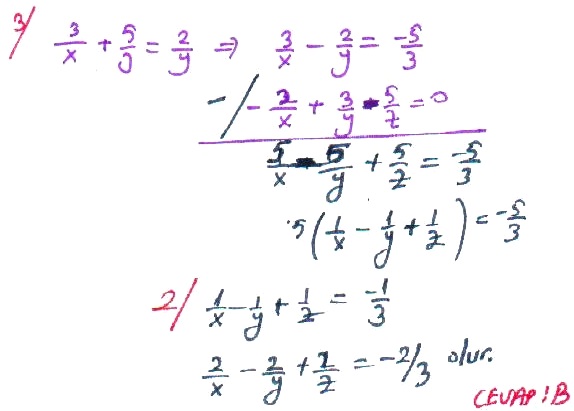 3/ 3/x + 5/3 = 2/y ⇒ 3/x - 2/y = -5/3
-/ -2/x + 3/y - 5/z = 0
5/x - 5/y + 5/z = -5/3
5(1/x - 1/y + 1/z) = -5/3
2/ 1/x - 1/y + 1/z = -1/3
2/x - 2/y + 2/z = -2/3 olur.
CEVAP: B